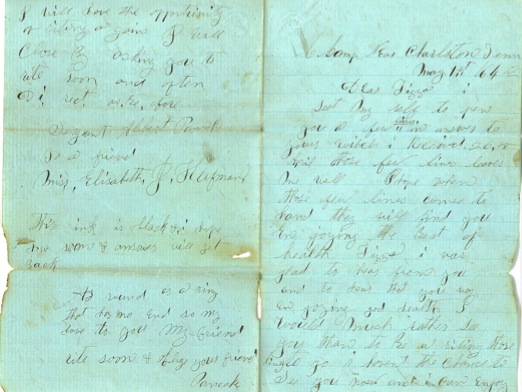 I will have the oppertunity
of riting a gain I will
Close by asking you to
rite soon and often
Di rect as be fore
Sergent Albert Pancake
to a friend
Miss, Elisabeth, J,
This ink is black
me soon & answer will get
back
As round as a ring
that has no End so my
love to you My friend
rite soon & oblige your friend
Pancake
Camp Near Charlston Tenn
May 1st 64
Dear
Set My self to pen
you a few lines in answer to
yours witch i
this those few lines leaves
me well I hope when
those few lines comes to
hand they will find you
En joying the best of
health i was
glad to hear from you
and to hear that you was
En joying good health I
would Much rather see
you than to be a riting those
i havent the Chance to
See you now and i Can Enjoy